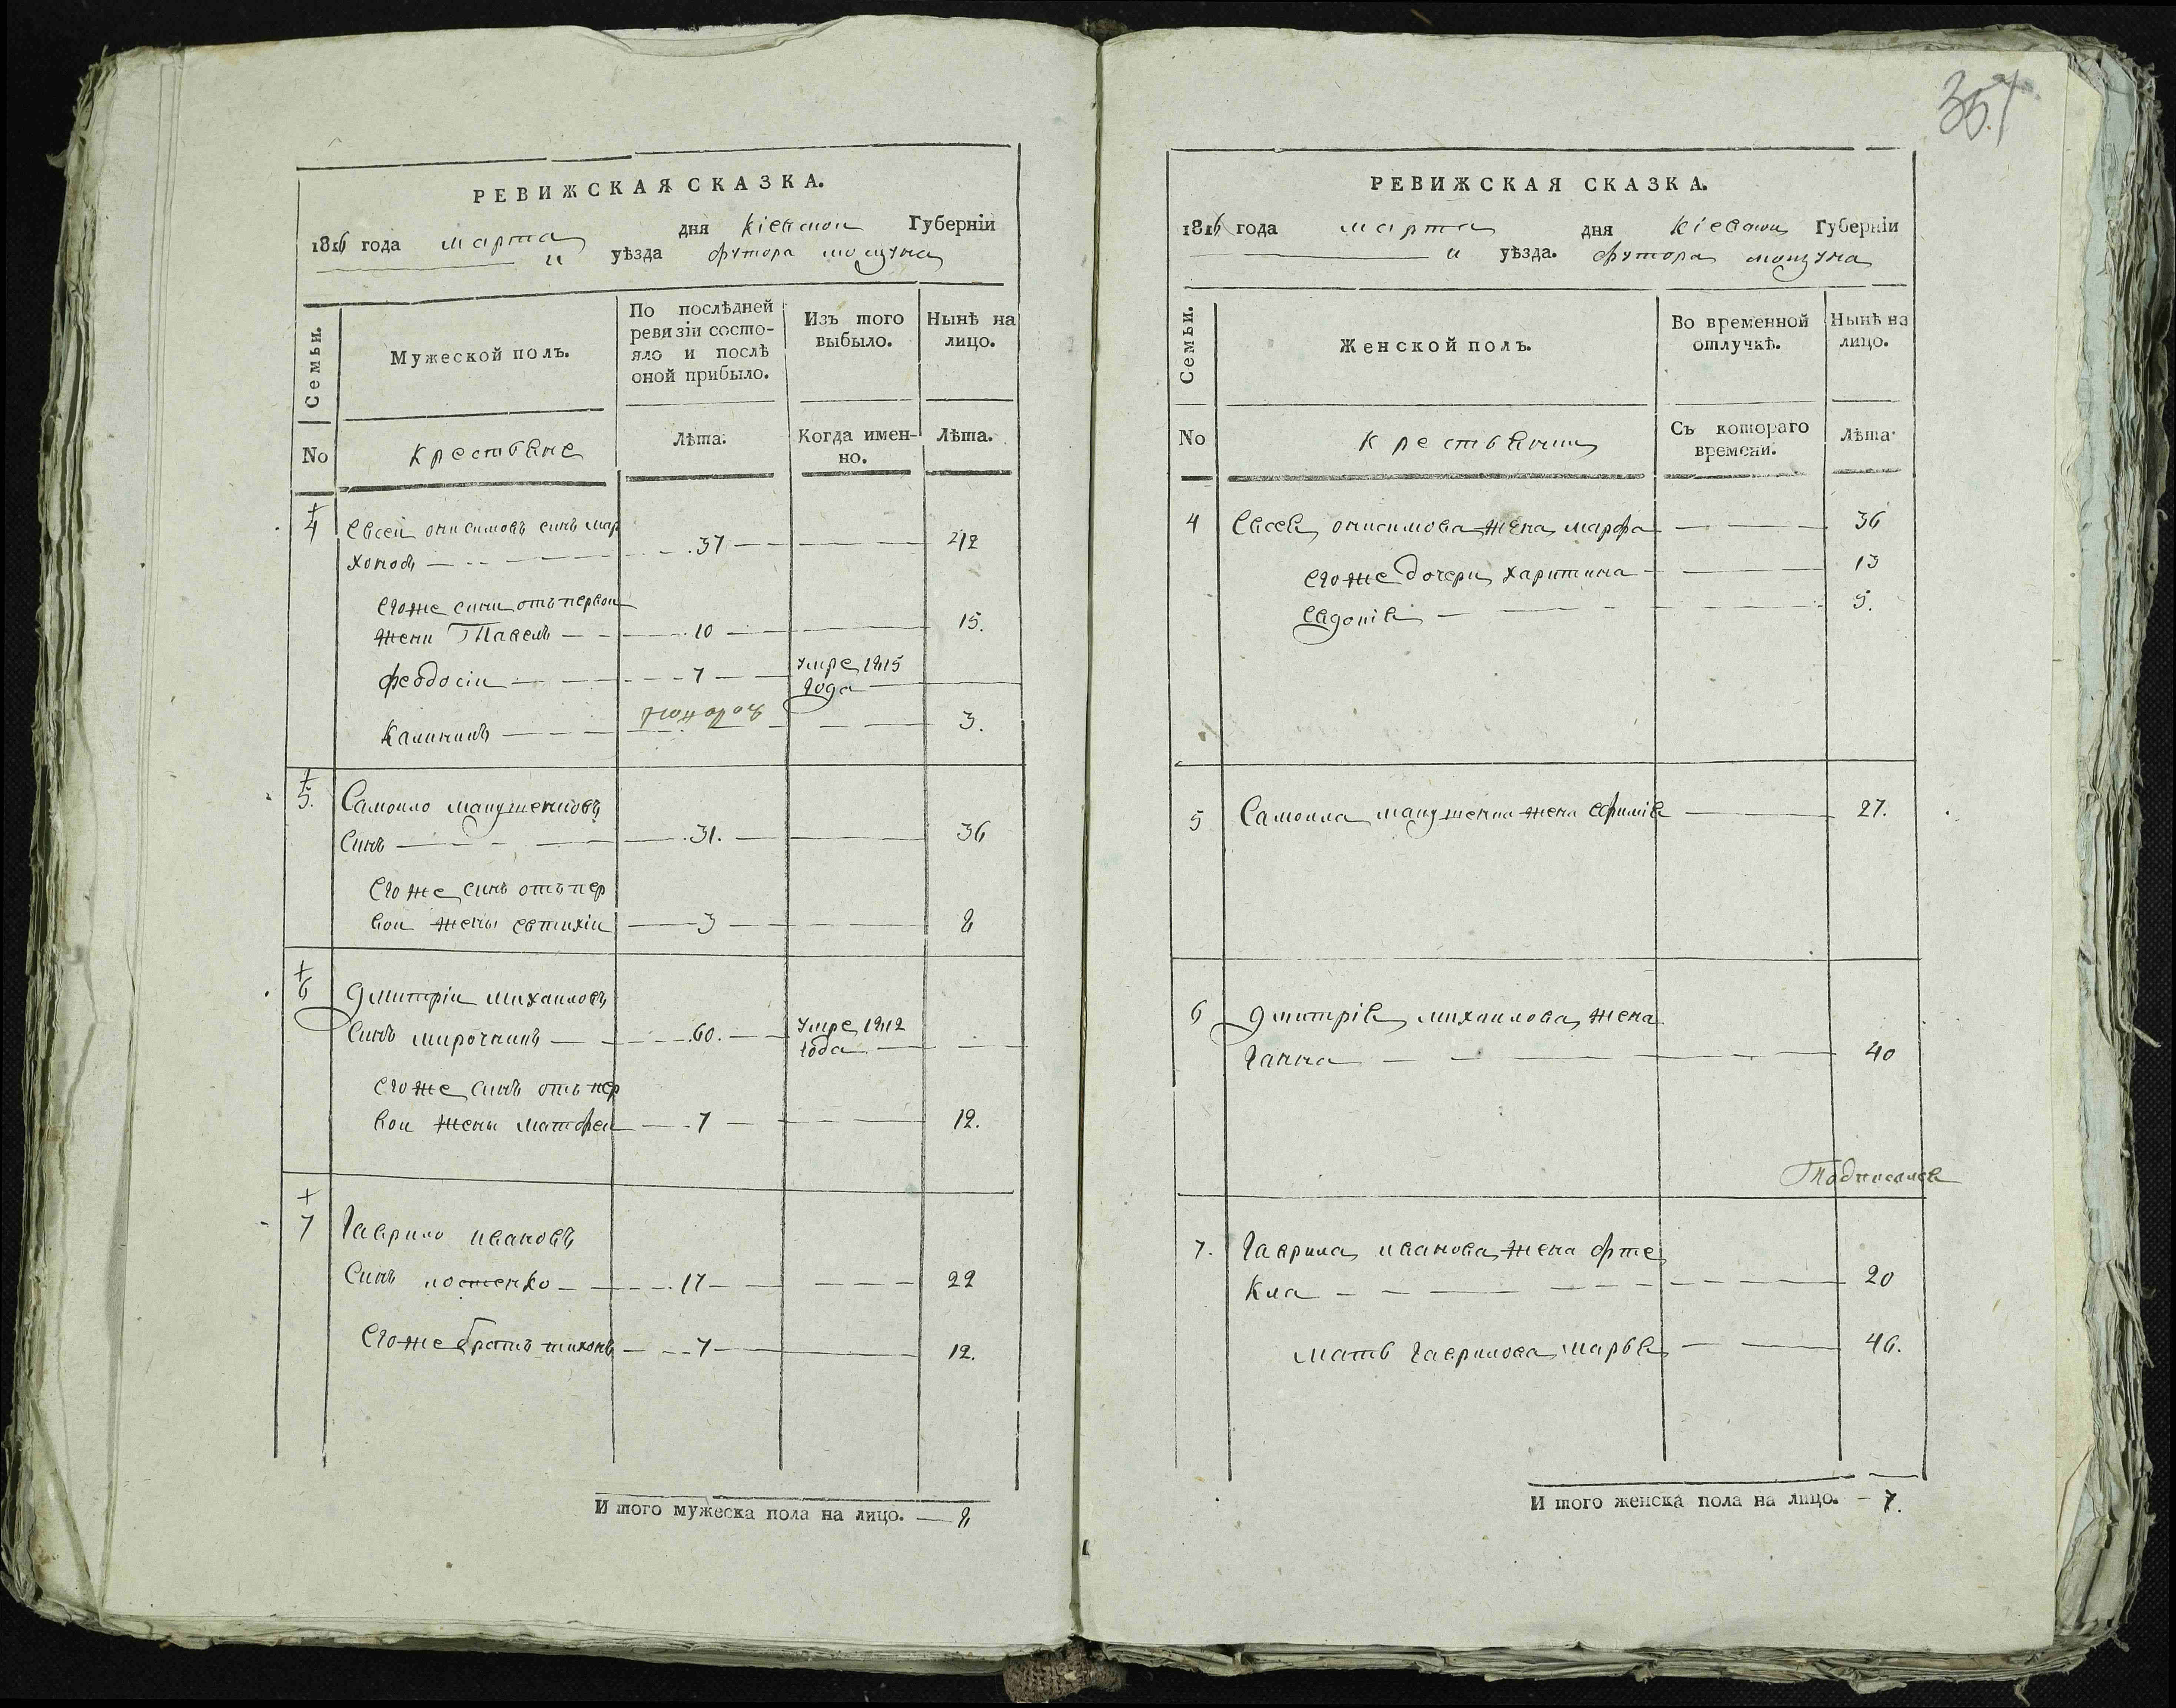 357.
РЕВИЖСКАЯ СКАЗКА.
1816 года марта дня киевской Губернїи
и уѣзда футора мощуна
Семьи.
Мужеской полъ.
По послѣдней
ревизїи состо-
яло и послѣ
оной прибыло.
Изъ того
выбыло.
Нынѣ на
лицо.
No
крестьяне
Лѣта.
Когда имен-
но.
Лѣта.
4 Евсеи онисимовъ синъ мар
хоновъ 37 42
его же сини отъ первои
жени Павелъ 10 15.
феодосїи 7 умре 1815
года
Калиникъ 3.
5. Самоило мануменковъ
синъ 31. 36
его же синъ отъ пер
вои жены евтихїи 3 8
6 Дмитрїи михаиловъ
синъ мирочникъ 60. умре 1812
года
его же синъ отъ пер
вои жены матфеи 7 12.
7 Гаврило ивановъ
синъ костенко 17 22
его же братъ тихонъ 7 12.
И того мужеска пола на лицо. 8
РЕВИЖСКАЯ СКАЗКА.
1816 года марта дня Кїевской Губернїи
и уѣзда. футора мощуна
Семьи.
Женской полъ.
Во временной
отлучкѣ.
Нынѣ на
лицо.
No
крестьянки
Съ котораго
времени.
Лѣта.
4 Евсея онисимова жена марфа 36
его же дочери харитина 13
Евдокїя 5.
5 Самоила жена ефимїя 27.
6 дмитрїя михаилова жена
Ганна 40
Подписался
7. Гаврила иванова жена фте
кла 20
мать гаврилова марья 46.
И того женска пола на лицо. 7.